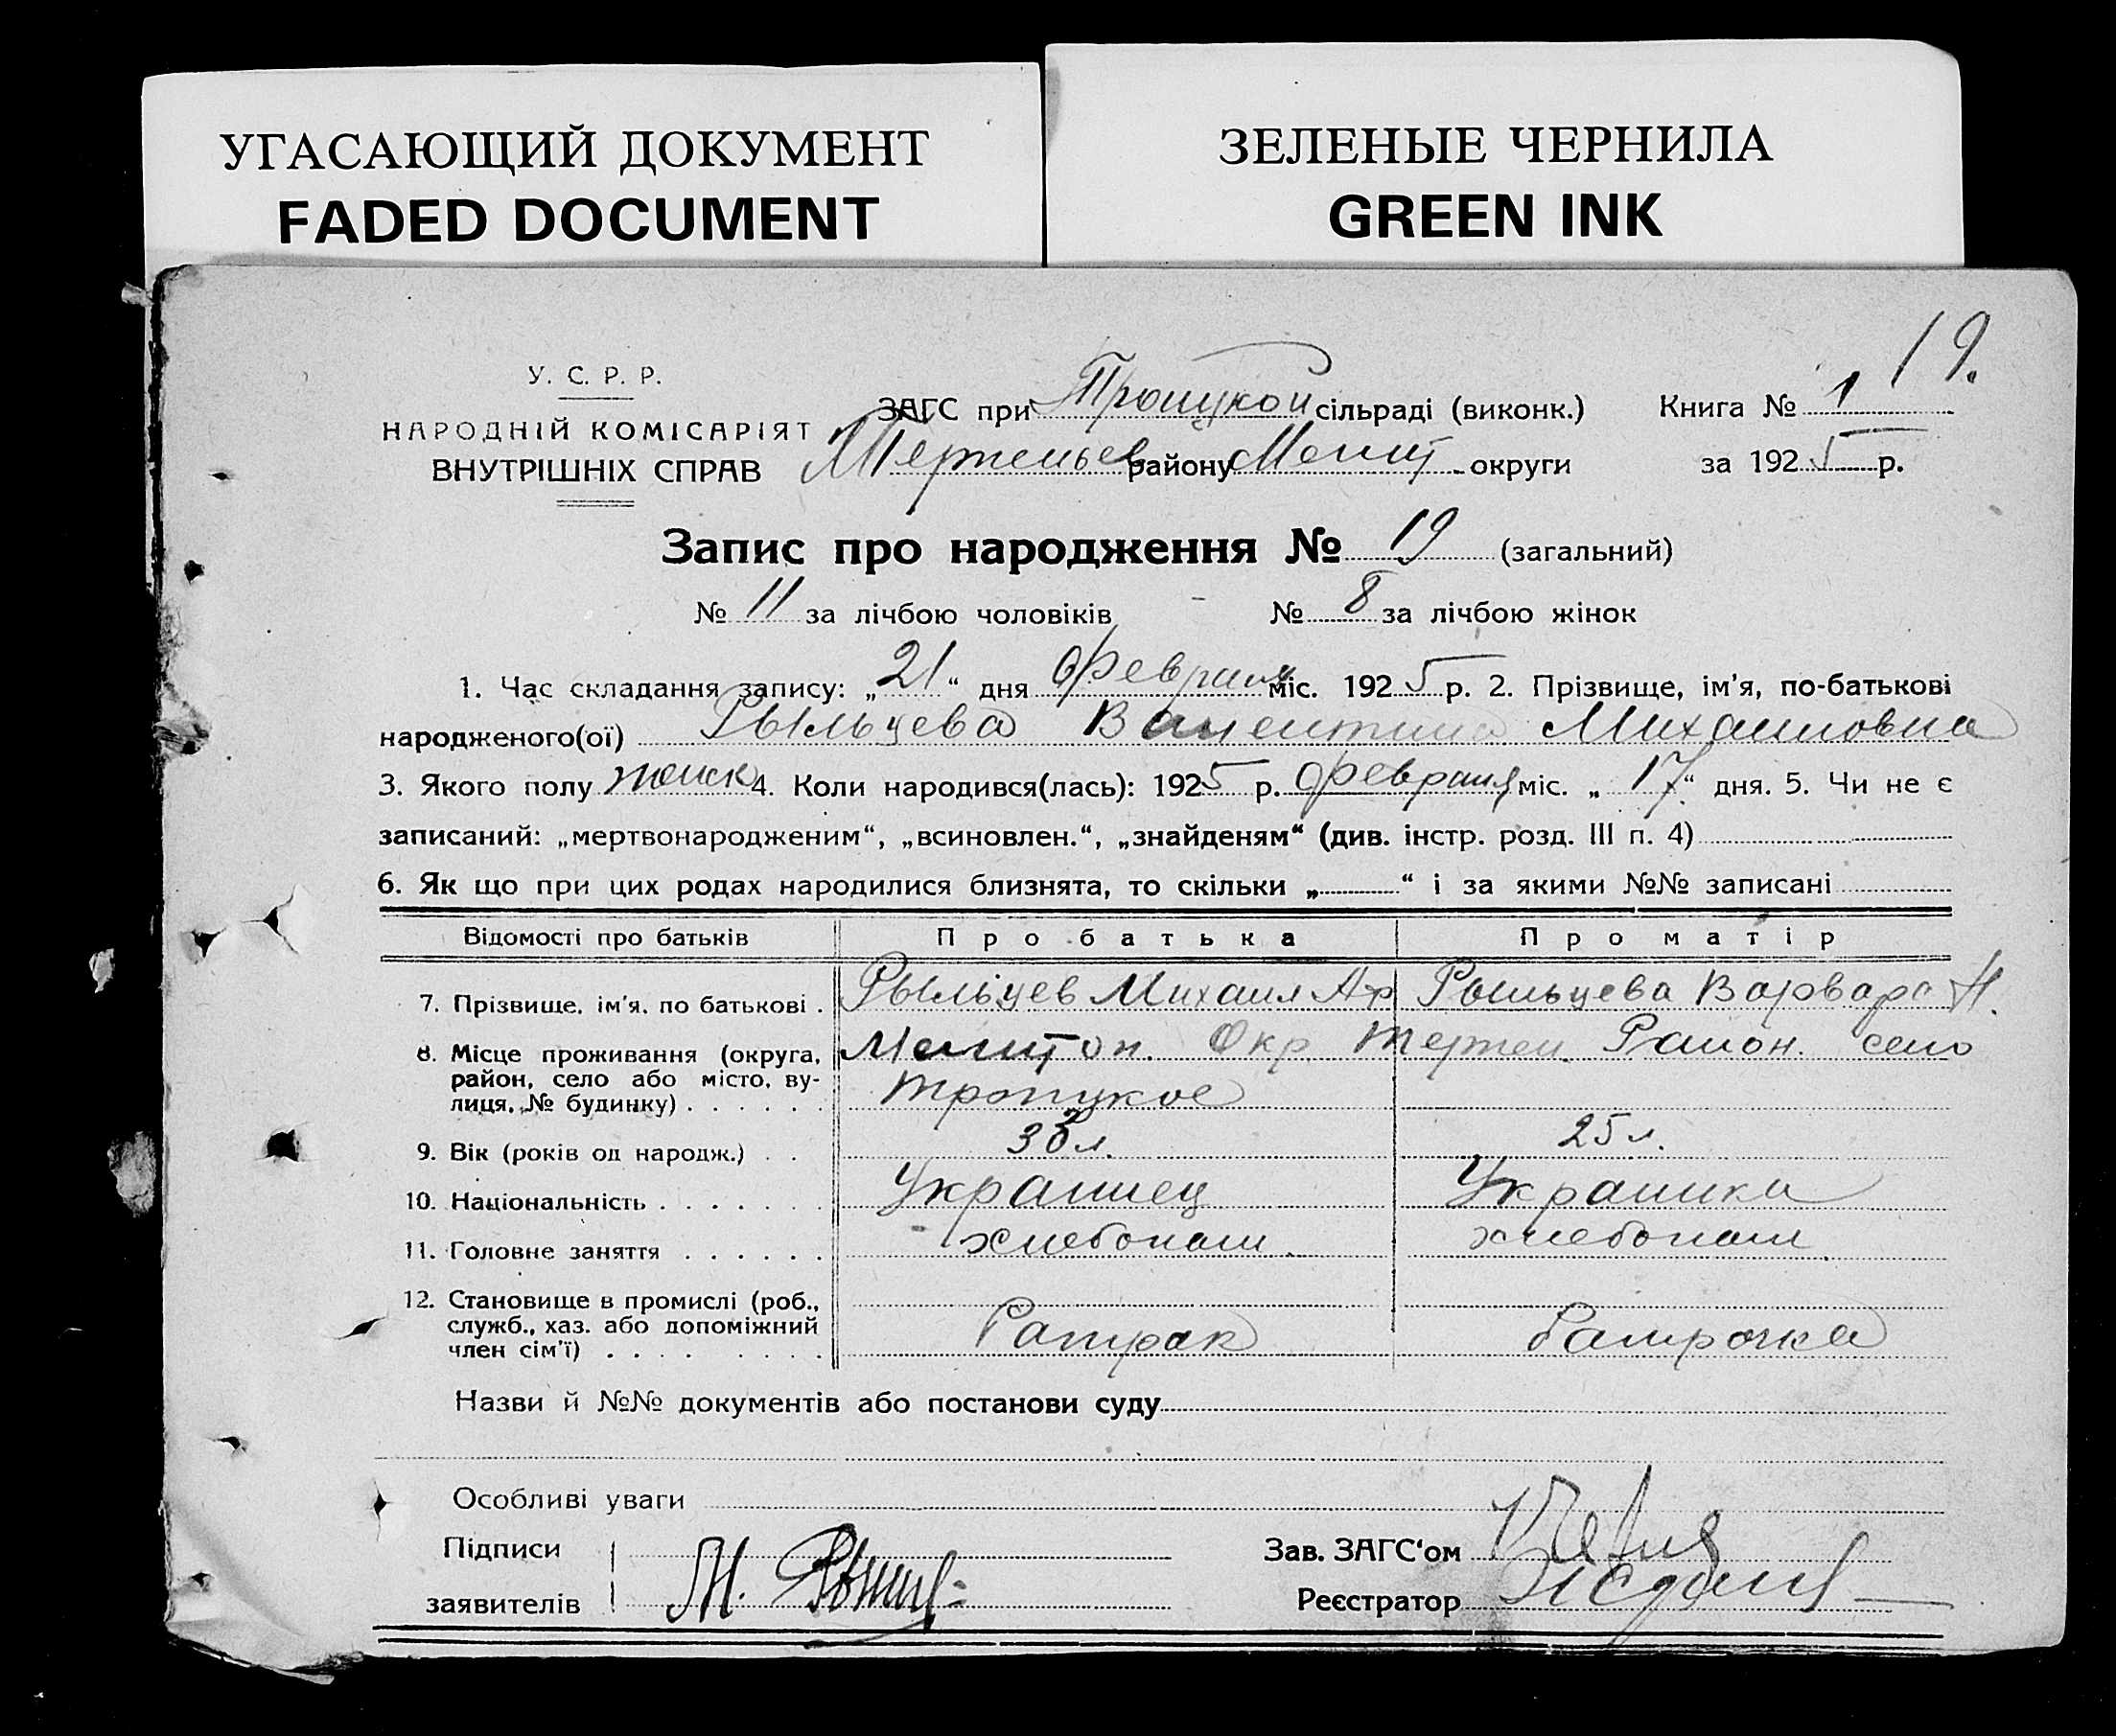 УГАСАЮЩИЙ ДОКУМЕНТ
FADED DOCUMENT
ЗЕЛЕНЫЕ ЧЕРНИЛА
GREEN INK
19.
У. С. Р. Р.
НАРОДНІЙ КОМІСАРІЯТ
ВНУТРІШНІХ СПРАВ
ЗАГС при Троицкой сільраді (виконк.) Книга № 1
району Мелит округи за 1925 р.
Запис про народження № 19 (загальний)
№ 11 за лічбою чоловіків № 8 за лічбою жінок
1. Час складання запису: „21“ дня февраля міс. 1925 р. 2. Прізвище, ім'я, по-батькові
народженого(ої) Рыльцева Валентина Михайловна
3. Якого полу женск 4. Коли народився(лась): 1925 р. февраля міс. „17“ дня. 5. Чи не є
записаний: „мертвонародженим“, „всиновлен.“, „знайденям“ (див. інстр. розд. III п. 4)
6. Як що при цих родах народилися близнята, то скільки „ “ і за якими №№ записані
Відомості про батьків Про батька Про матір
7. Прізвище, ім'я, по батькові . Рыльцев Михаил Аф Рыльцева Варвара Н.
8. Місце проживання (округа, Мелитоп. Окр Терпен. Район. село
район, село або місто, ву-
лиця, № будинку) . . . . . . Троицкое
9. Вік (років од народж.) . . л. 25 л.
10. Національність . . . . . . . Украинец Украинка
11. Головне заняття . . . . . . хлебопаш. хлебопаш.
12. Становище в промислі (роб.,
служб., хаз. або допоміжний
член сім'ї) . . . . . . . . Батрак батрачка
Назви й №№ документів або постанови суду
Особливі уваги
Підписи
заявителів М. Рыльц
Зав. ЗАГС'ом
Реєстратор